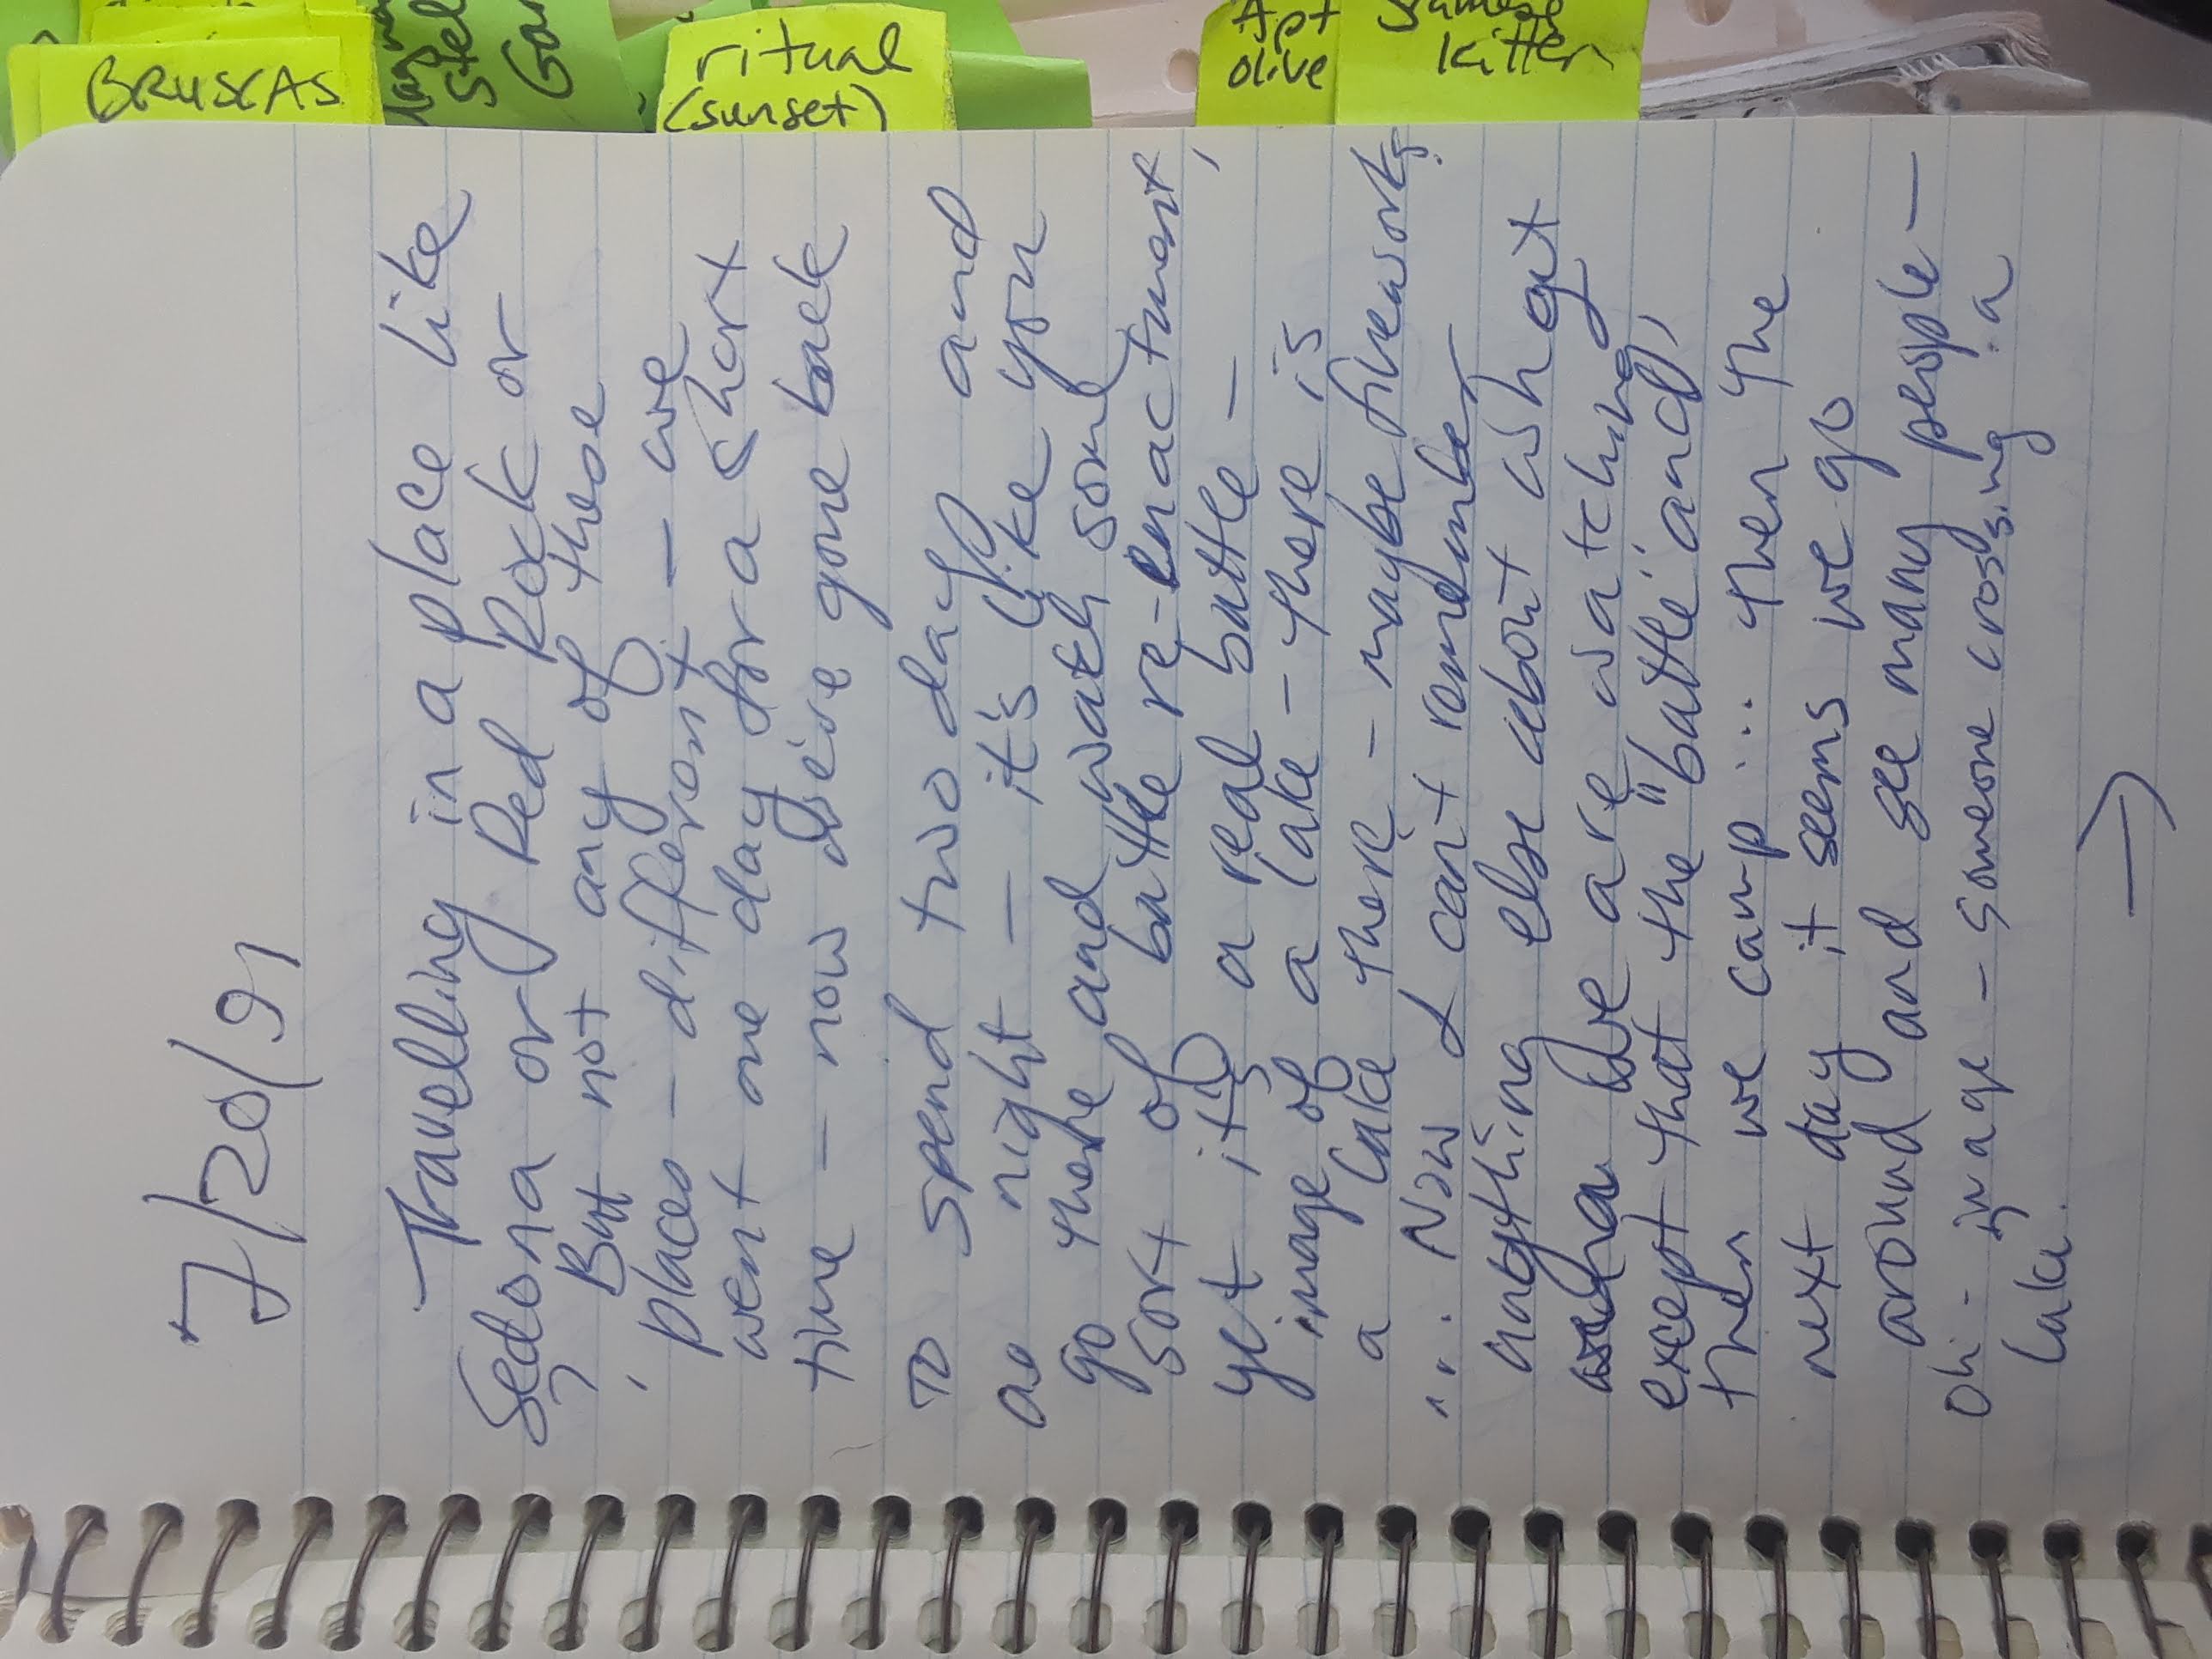 BRUSCAS
ritual
(sunset)
Apt
olive
kitten
7/20/91
Travelling in a place like
Sedona or Red Rock or
But not any of these
places - different - we
went one day for a short
time - now we gone back
To spend two days and
a night - it's like you
go there and watch some
sort of battle re-enactment,
yet it's a real battle -
image of a lake - there is
a lake there - maybe fireworks
... Now I can't remember
anything else about what
we are watching
except that the "battle" ends,
then we camp... then the
next day it seems we go
around and see many people -
Oh - image - someone crossing a
lake.
→